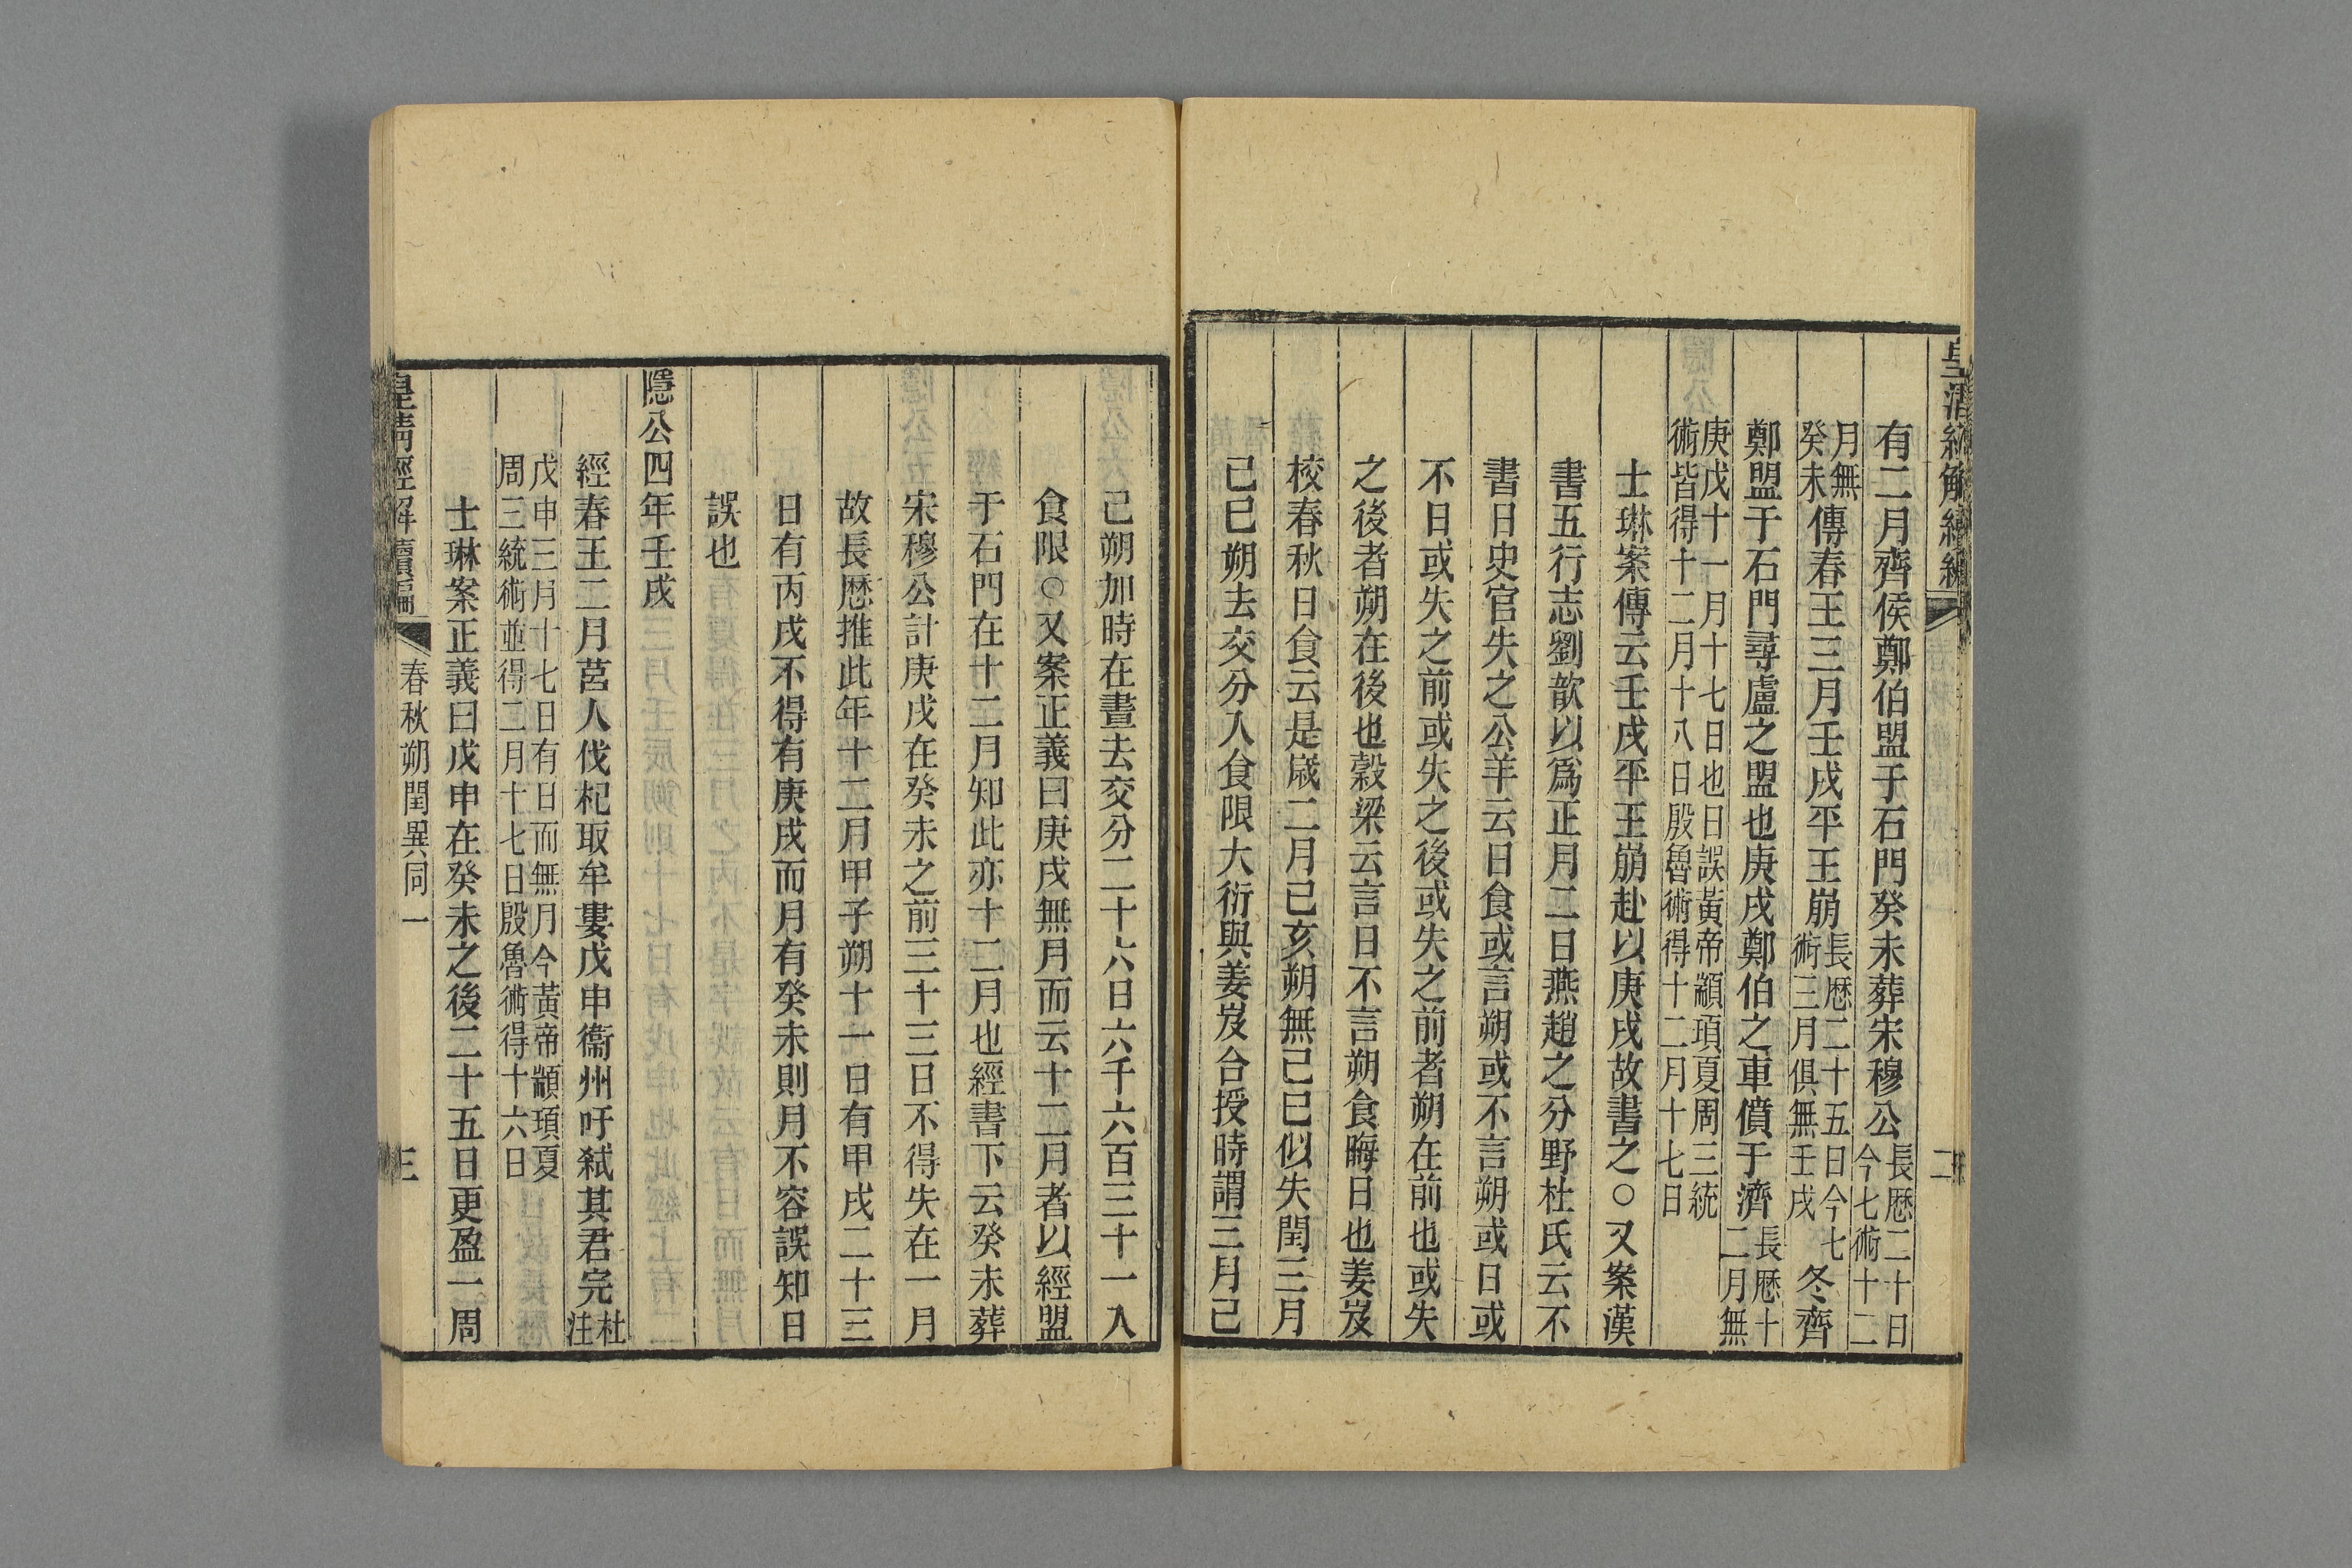 皇清經解續編
二
有二月齊侯鄭伯盟于石門癸未葬宋穆公長厯二十日今七術十二
月無癸未傳春王三月壬戌平王崩長厯二十五日今七術三月俱無壬戌冬齊
鄭盟于石門尋盧之盟也庚戌鄭伯之車僨于濟長厯十二月無
庚戌十一月十七日也日誤黃帝顓頊夏周三統術皆得十二月十八日殷魯術得十二月十七日
士琳案傳云壬戌平王崩赴以庚戌故書之○又案漢
書五行志劉歆以爲正月二日燕趙之分野杜氏云不
書日史官失之公羊云日食或言朔或不言朔或日或
不日或失之前或失之後或失之前者朔在前也或失
之後者朔在後也穀梁云言日不言朔食晦日也姜岌
校春秋日食云是嵗二月己亥朔無己巳似失閏三月
己巳朔去交分入食限大衍與姜岌合授時謂三月己
己朔加時在晝去交分二十六日六千六百三十一入
食限○又案正義曰庚戌無月而云十二月者以經盟
于石門在十二月知此亦十二月也經書下云癸未葬
宋穆公計庚戌在癸未之前三十三日不得失在一月
故長厯推此年十二月甲子朔十一日有甲戌二十三
日有丙戌不得有庚戌而月有癸未則月不容誤知日
誤也
隱公四年壬戌
經春王二月莒人伐杞取牟婁戊申衞州吁弑其君完杜注
戊申三月十七日有日而無月今黃帝顓頊夏周三統術並得二月十七日殷魯術得十六日
士琳案正義曰戊申在癸未之後二十五日更盈一周
皇清經解續編
春秋朔閏異同一
三